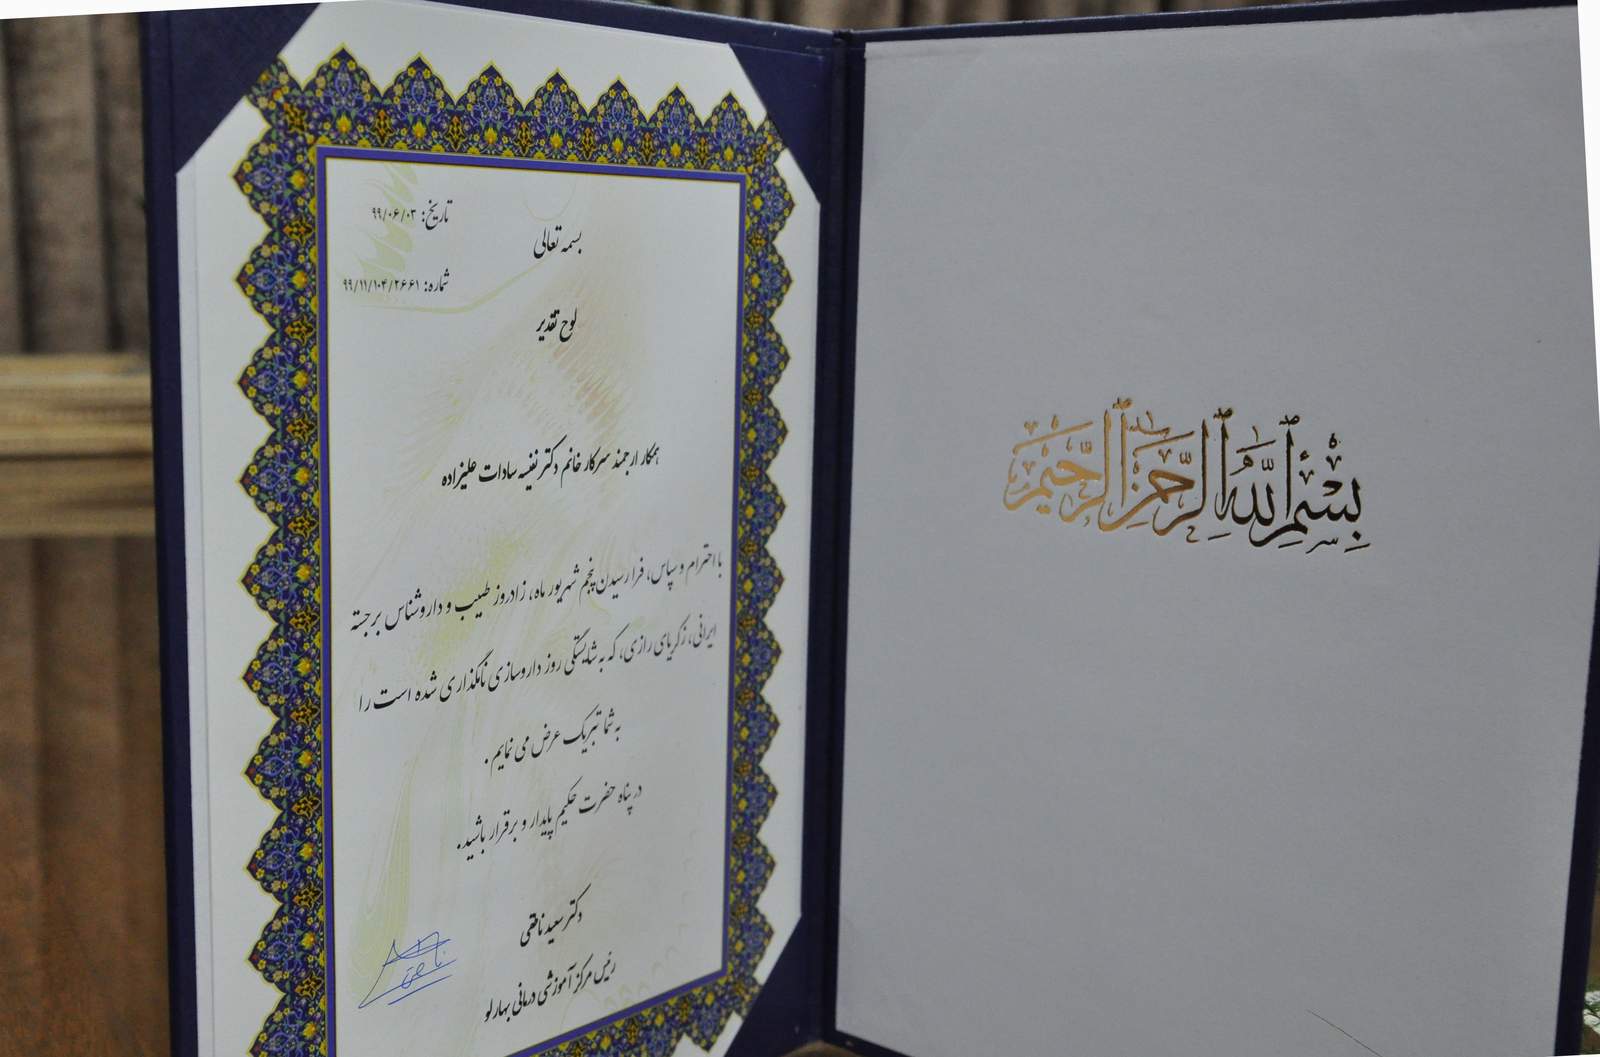 تاریخ: ۹۹/۰۶/۰۳
بسمه تعالی
شماره: ۹۹/۱۱/۱۰۴/۲۶۶۱
لوح تقدیر
همکار ارجمند سرکار خانم دکتر نفیسه سادات علیزاده
با احترام و سپاس، فرا رسیدن پنجم شهریور ماه، زادروز طبیب و داروشناس برجسته
ایرانی، زکریای رازی، که به شایستگی روز داروسازی نامگذاری شده است را
به شما تبریک عرض می نمایم.
در پناه حضرت حکیم پایدار و برقرار باشید.
دکتر سعید ناطقی
رئیس مرکز آموزشی درمانی بهارلو
بِسْمِ ٱللَّهِ ٱلرَّحْمَٰنِ ٱلرَّحِيمِ